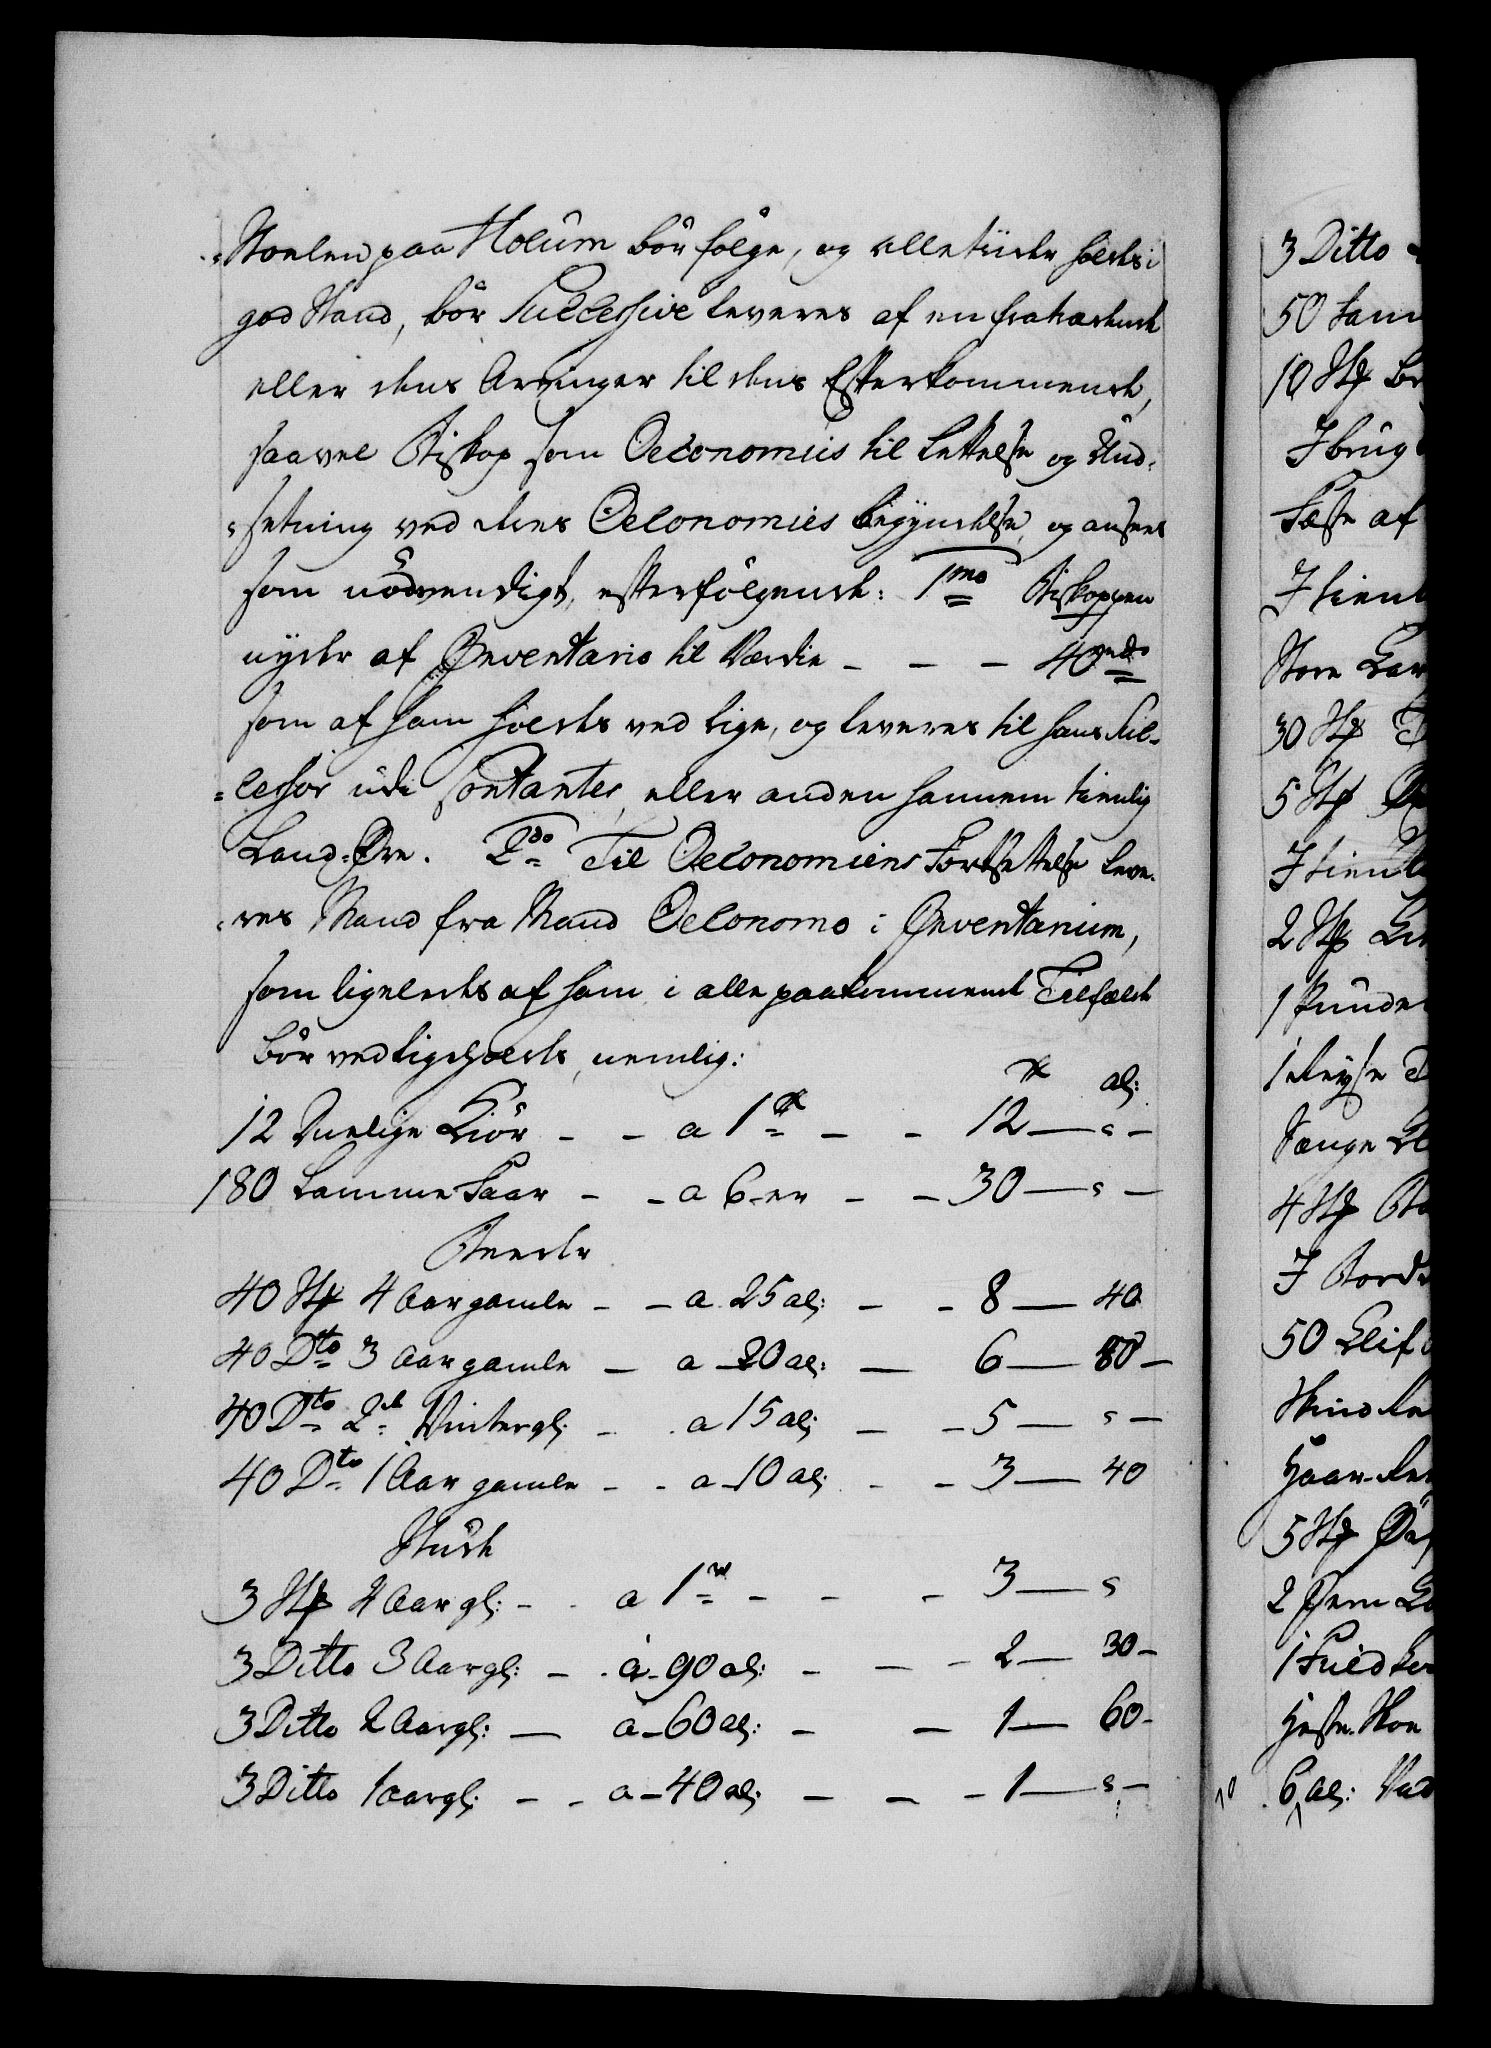 Stoelen paa Holum bör fölge, og alletiider holdes i
god Stand, bör Successive leveres af en fratrædende
eller dens Arvinger til dens Efterkommende,
saavel Biskop som Oeconomus til Lettelse og Und-
-setning ved deres Oeconomies begyndelse, og ansees
som nödvendigt, efterfölgende: 1mo Biskoppen
nyder af Inventario til Værdie - - - 40
som af ham holdes ved lige, og leveres til hans Suc-
-cessor udi Contanter, eller anden hannem tienlig
Land-Øre. 2do Til Oeconomiens Fortsettelse leve-
-res Mand fra Mand Oeconomo i Inventarium,
som ligeledes af ham i alle paakommende Tilfælde
bör vedligeholdes, nemlig:
al:
12 Duelige Kiör - - a 1 - - 12 - s -
180 Lamme Faar - - a 6 - er - - 30 - s -
Beeder
40 Stk 4 Aar gamle - - a 25 al: - - 8 - 40
40 Dto 3 Aar gamle - a 20 al: - 6 - 80 -
40 Dto 2de Vintergl: - a 15 al: - - 5 - s -
40 Dto 1 Aar gamle - - a 10 al: - - 3 - 40
Stude
3 Stk 4 Aar gl: - - a 1 - - - 3 - s
3 Ditto 3 Aar gl: - - à 90 al: - - - 2 - 30 -
3 Ditto 2 Aar gl: - à 60 al: - - 1 - 60 -
3 Ditto 1 aar gl: - - a 40 al: - - - 1 - s -
3 Ditto
50
10 Stk
I brug
af
I
Store
30 Stk
5 Stk
I
2 Stk
1
1
Senge
4 Stk
I
50
5 Stk
2
1
6 al: